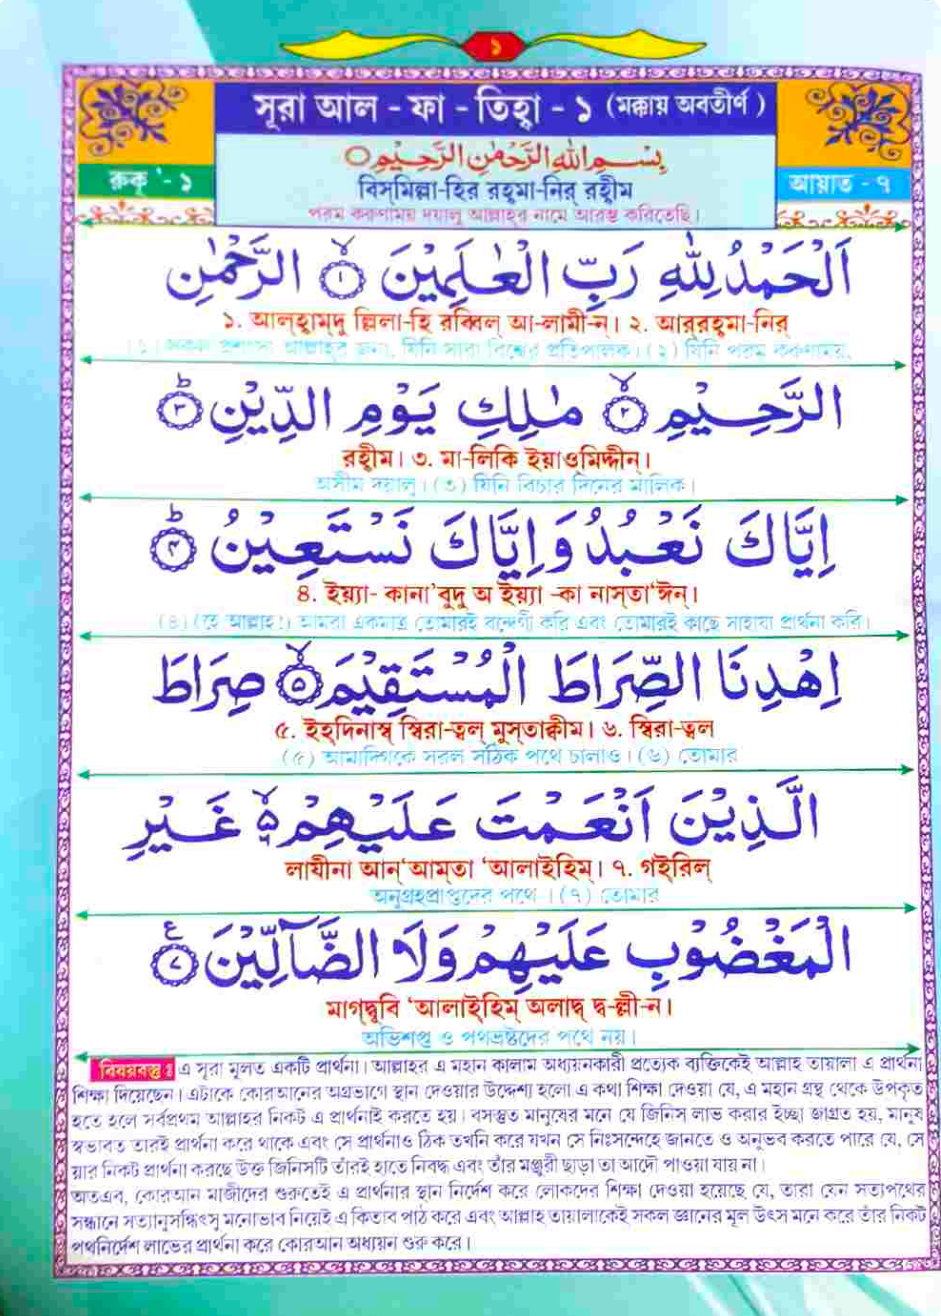 ১
সূরা আল - ফা - তিহ্বা - ১ (মক্কায় অবতীর্ণ)
بِسْمِ اللهِ الرَّحْمٰنِ الرَّحِيْمِ○
রুকূ '- ১
বিস্‌মিল্লা-হির রহ্বমা-নির্ রহ্বীম
আয়াত - ৭
পরম করুণাময় দয়ালু আল্লাহ্‌র নামে আরম্ভ করিতেছি।
اَلْحَمْدُ لِلّٰهِ رَبِّ الْعٰلَمِيْنَ ۙ﴿١﴾ الرَّحْمٰنِ
১. আল্‌হ্বাম্‌দু ল্লিলা-হি রব্বিল্ আ-লামী-ন্। ২. আর্‌রহ্বমা-নির্
(১) সকল প্রশংসা আল্লাহ্‌র জন্য, যিনি সারা বিশ্বের প্রতিপালক। (২) যিনি পরম করুণাময়,
الرَّحِيْمِ ۙ﴿٢﴾ مٰلِكِ يَوْمِ الدِّيْنِ ؕ﴿٣﴾
রহ্বীম। ৩. মা-লিকি ইয়াওমিদ্দীন্।
অসীম দয়ালু। (৩) যিনি বিচার দিনের মালিক।
اِيَّاكَ نَعْبُدُ وَاِيَّاكَ نَسْتَعِيْنُ ؕ﴿۴﴾
৪. ইয়্যা- কানা'বুদু অ ইয়্যা -কা নাস্‌তা‘ঈন্।
(৪) (হে আল্লাহ!) আমরা একমাত্র তোমারই বন্দেগী করি এবং তোমারই কাছে সাহায্য প্রার্থনা করি।
اِهْدِنَا الصِّرَاطَ الْمُسْتَقِيْمَ ۙ﴿۵﴾ صِرَاطَ
৫. ইহ্‌দিনাস্ব স্বিরা-ত্বল্ মুস্‌তাক্বীম। ৬. স্বিরা-ত্বল
(৫) আমাদিগকে সরল সঠিক পথে চালাও। (৬) তোমার
الَّذِيْنَ اَنْعَمْتَ عَلَيْهِمْ ۙ۬ غَيْرِ
লাযীনা আন্‘আম্‌তা ‘আলাইহিম্। ৭. গইরিল্
অনুগ্রহপ্রাপ্তদের পথে । (৭) তোমার
الْمَغْضُوْبِ عَلَيْهِمْ وَلَا الضَّآلِّيْنَ ﴿٧﴾ ع
মাগ্‌দ্বূবি ‘আলাই্‌হিম্ অলাদ্ব দ্ব-ল্লী-ন।
অভিশপ্ত ও পথভ্রষ্টদের পথে নয়।
বিষয়বস্তু ঃ এ সূরা মূলত একটি প্রার্থনা। আল্লাহর এ মহান কালাম অধ্যয়নকারী প্রত্যেক ব্যক্তিকেই আল্লাহ তায়ালা এ প্রার্থনা
শিক্ষা দিয়েছেন। এটাকে কোরআনের অগ্রভাগে স্থান দেওয়ার উদ্দেশ্য হলো এ কথা শিক্ষা দেওয়া যে, এ মহান গ্রন্থ থেকে উপকৃত
হতে হলে সর্বপ্রথম আল্লাহর নিকট এ প্রার্থনাই করতে হয়। বস্তুত মানুষের মনে যে জিনিস লাভ করার ইচ্ছা জাগ্রত হয়, মানুষ
স্বভাবত তারই প্রার্থনা করে থাকে এবং সে প্রার্থনাও ঠিক তখনি করে যখন সে নিঃসন্দেহে জানতে ও অনুভব করতে পারে যে, সে
যার নিকট প্রার্থনা করছে উক্ত জিনিসটি তাঁরই হাতে নিবদ্ধ এবং তাঁর মঞ্জুরী ছাড়া তা আদৌ পাওয়া যায় না।
অতএব, কোরআন মাজীদের শুরুতেই এ প্রার্থনার স্থান নির্দেশ করে লোকদের শিক্ষা দেওয়া হয়েছে যে, তারা যেন সত্যপথের
সন্ধানে সত্যানুসন্ধিৎসু মনোভাব নিয়েই এ কিতাব পাঠ করে এবং আল্লাহ তায়ালাকেই সকল জ্ঞানের মূল উৎস মনে করে তাঁর নিকট
পথনির্দেশ লাভের প্রার্থনা করে কোরআন অধ্যয়ন শুরু করে।